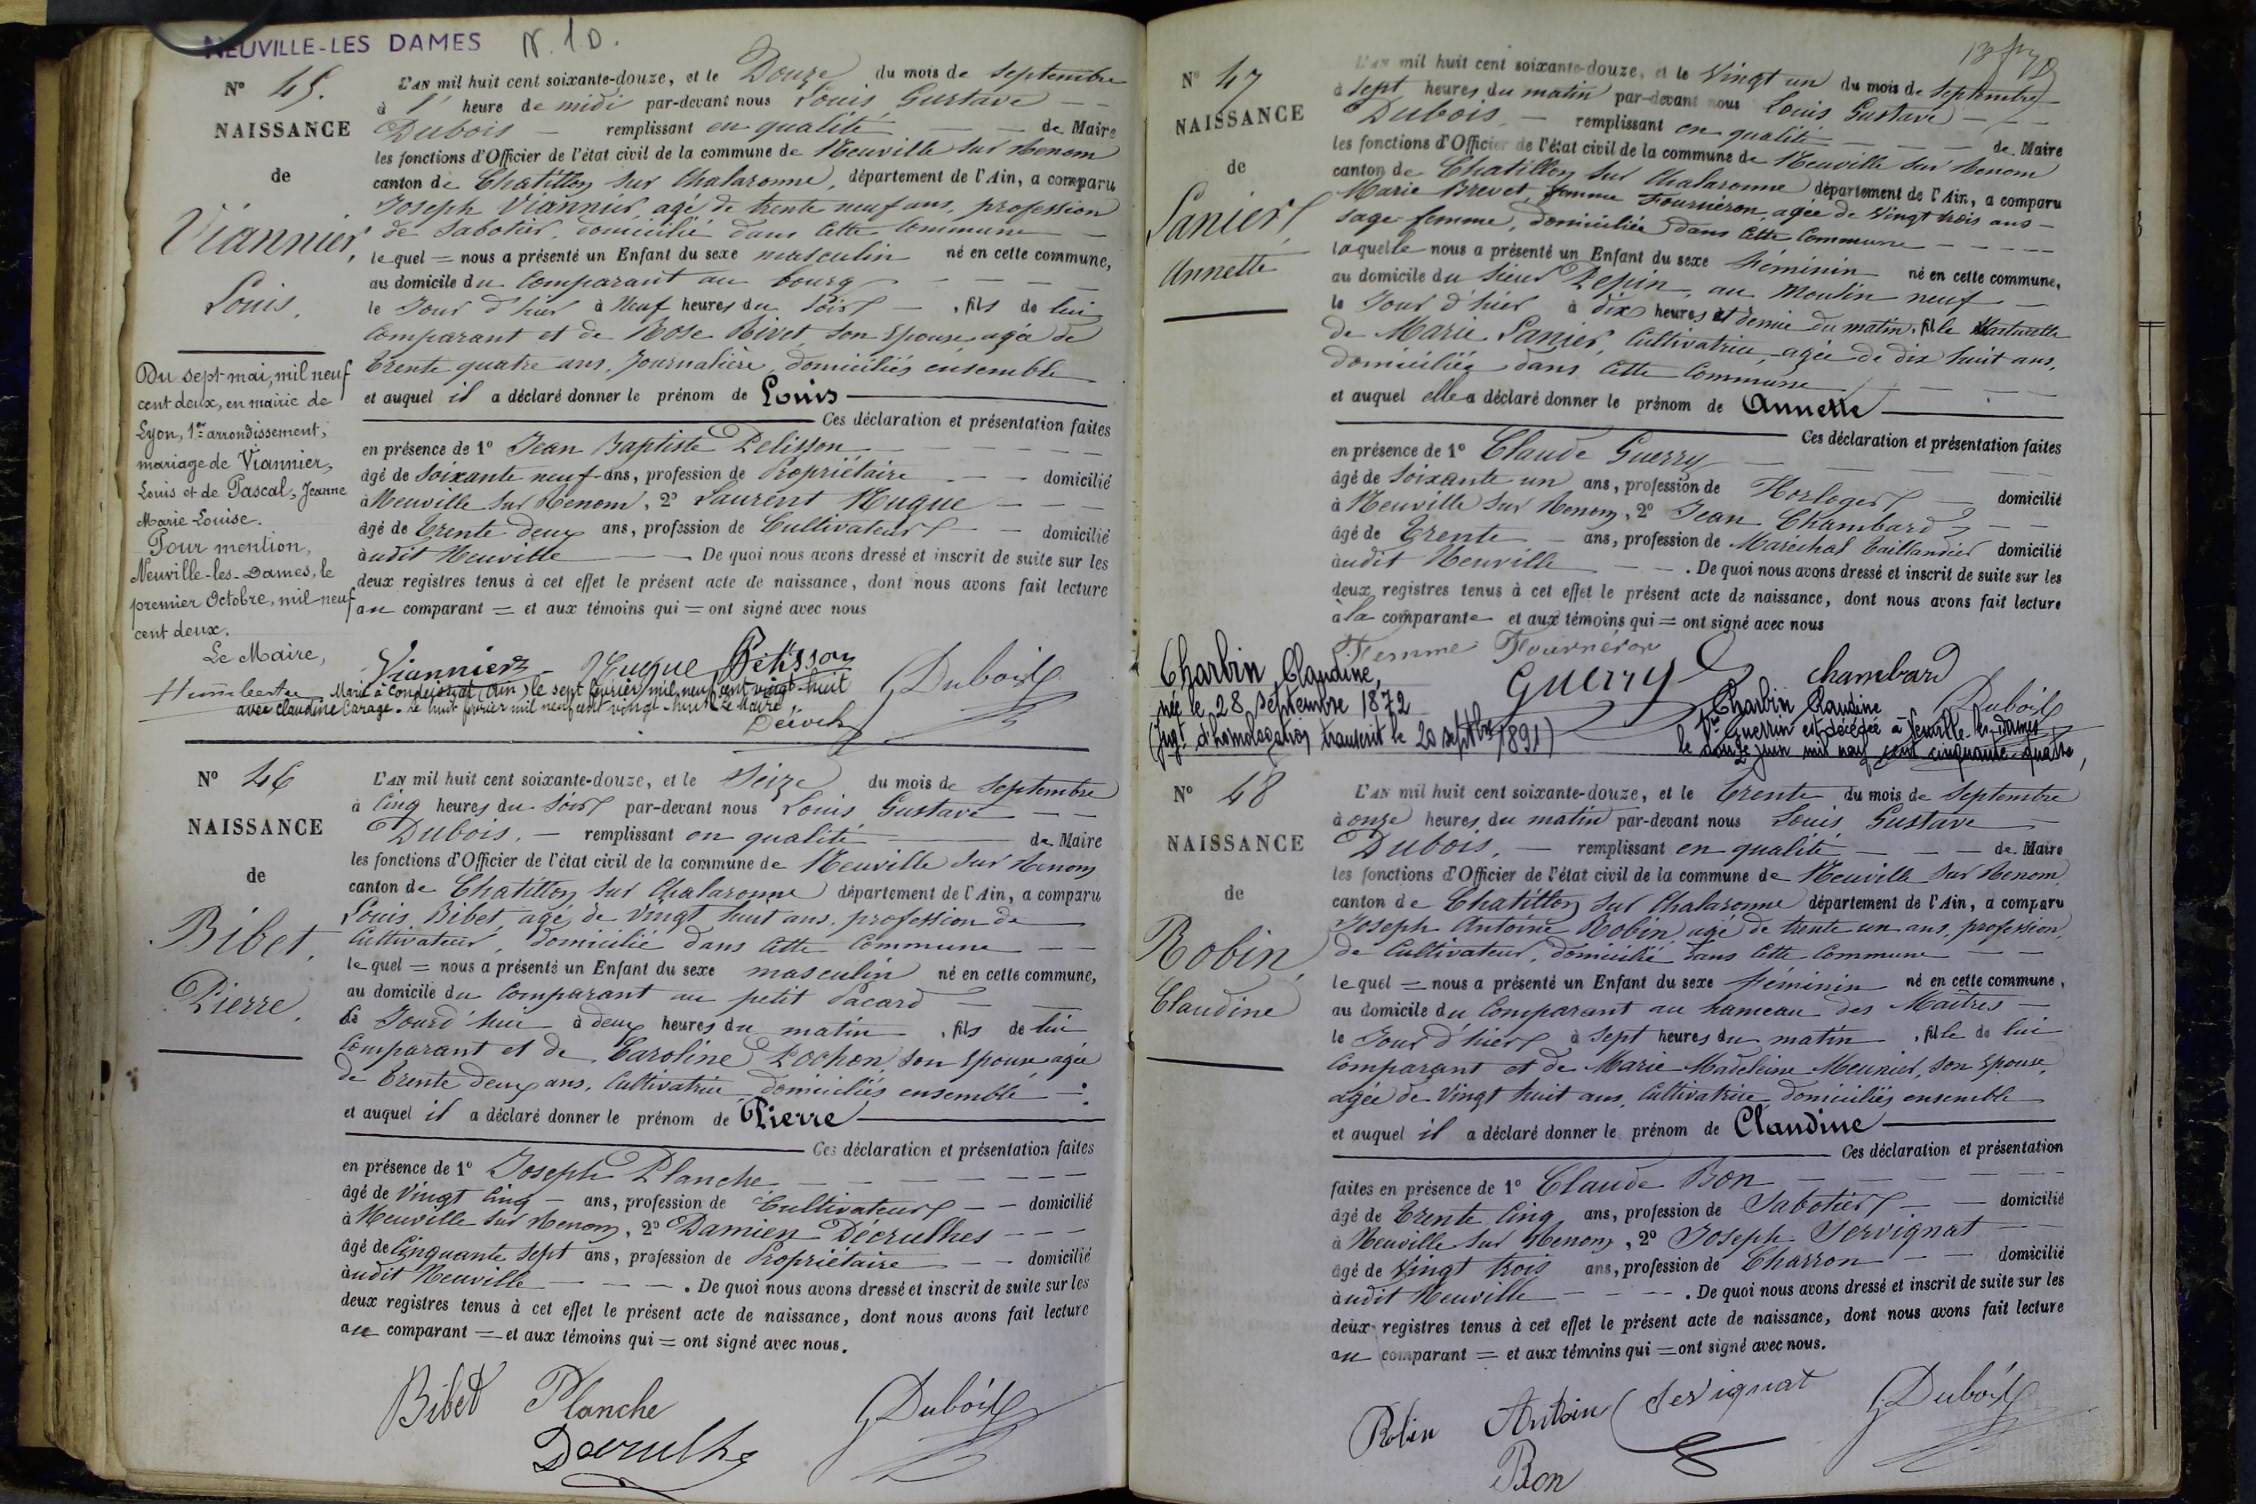 NEUVILLE-LES DAMES N. 10.
N° 45.
NAISSANCE
de
Viannier,
Louis.
L'AN mil huit cent soixante-douze, et le Douze du mois de septembre
à 1' heure de midi par-devant nous Louis Gustave
Dubois — remplissant en qualité — de Maire
les fonctions d'Officier de l'état civil de la commune de Neuville sur Renom
canton de Chatillon sur Chalaronne, département de l'Ain, a comparu
Joseph Viannier, agé de trente neuf ans, profession
de Sabotier, domicilié dans cette Commune —
le quel = nous a présenté un Enfant du sexe masculin né en cette commune,
au domicile du Comparant au bourg
le Jour d'hier à Neuf heures du soir — , fils de lui
Comparant et de Rose Rivet, son Epouse agée de
trente quatre ans, Journalière, domiciliés ensemble
et auquel il a déclaré donner le prénom de Louis
Ces déclaration et présentation faites
en présence de 1° Jean Baptiste Pelisson
âgé de soixante neuf ans, profession de Propriétaire — domicilié
à Neuville sur Renom, 2° Laurent Hugue
âgé de trente deux ans, profession de Cultivateur — domicilié
audit Neuville — De quoi nous avons dressé et inscrit de suite sur les
deux registres tenus à cet effet le présent acte de naissance, dont nous avons fait lecture
au comparant = et aux témoins qui = ont signé avec nous
Du sept mai, mil neuf
cent deux, en mairie de
Lyon, 1er arrondissement,
mariage de Viannier,
Louis et de Pascal, Jeanne
Marie Louise.
Pour mention,
Neuville-les-Dames, le
premier Octobre, mil neuf
cent deux.
Le Maire,
Viannier Hugue Pelisson Dubois
Marié à Condeissiat (Ain) le sept février mil neuf cent vingt-huit
avec Claudine Carage. Le huit février mil neuf cent vingt-huit Le Maire
N° 46
NAISSANCE
de
Bibet,
Pierre.
L'AN mil huit cent soixante-douze, et le Seize du mois de septembre
à Cinq heures du soir par-devant nous Louis Gustave
Dubois. — remplissant en qualité — de Maire
les fonctions d'Officier de l'état civil de la commune de Neuville sur Renom
canton de Chatillon sur Chalaronne département de l'Ain, a comparu
Louis Bibet, agé de vingt huit ans, profession de
Cultivateur, domicilié dans cette Commune
le quel = nous a présenté un Enfant du sexe masculin né en cette commune,
au domicile du Comparant au petit Pacard
Le Jourd'hui à deux heures du matin , fils de lui
Comparant et de Caroline Pochon, son Epouse agée
de trente deux ans, Cultivatrice, domiciliés ensemble
et auquel il a déclaré donner le prénom de Pierre
Ces déclaration et présentation faites
en présence de 1° Joseph Planche
âgé de vingt cinq — ans, profession de Cultivateur — domicilié
à Neuville sur Renom, 2° Damien Décrulhes
âgé de Cinquante sept ans, profession de Propriétaire — domicilié
audit Neuville — . De quoi nous avons dressé et inscrit de suite sur les
deux registres tenus à cet effet le présent acte de naissance, dont nous avons fait lecture
au comparant = et aux témoins qui = ont signé avec nous.
Bibet Planche Dubois
Decrulhe
N° 47
NAISSANCE
de
Lanier,
Annette
L'AN mil huit cent soixante-douze, et le Vingt un du mois de Septembre
à sept heures du matin par-devant nous Louis Gustave
Dubois, — remplissant en qualité — de Maire
les fonctions d'Officier de l'état civil de la commune de Neuville sur Renom
canton de Chatillon sur Chalaronne département de l'Ain, a comparu
Marie Brevet, femme Fournéron, agée de vingt trois ans
sage femme, domiciliée dans cette Commune
laquelle nous a présenté un Enfant du sexe féminin né en cette commune,
au domicile du sieur Pepin, au Moulin neuf
le Jour d'hier à dix heures et demie du matin, fille Naturelle
de Marie Lanier, Cultivatrice, agée de dix huit ans,
domiciliée dans cette Commune
et auquel elle a déclaré donner le prénom de Annette
Ces déclaration et présentation faites
en présence de 1° Claude Guerry
âgé de soixante un ans, profession de Horloger — domicilié
à Neuville sur Renom, 2° Jean Chambard
âgé de trente — ans, profession de Maréchal taillandier domicilié
audit Neuville — . De quoi nous avons dressé et inscrit de suite sur les
deux registres tenus à cet effet le présent acte de naissance, dont nous avons fait lecture
à la comparante et aux témoins qui = ont signé avec nous
Femme Fournéron
Guerry Chambard
Dubois
Charbin Claudine,
née le 28 septembre 1872
(Jugt d'homologation transcrit le 20 septbre 1891)
Charbin Claudine
Vve Guerrin est décédée à Neuville-les-Dames
le douze juin mil neuf cent cinquante-quatre,
N° 48
NAISSANCE
de
Robin,
Claudine
L'AN mil huit cent soixante-douze, et le trente du mois de Septembre
à onze heures du matin par-devant nous Louis Gustave
Dubois, — remplissant en qualité — de Maire
les fonctions d'Officier de l'état civil de la commune de Neuville sur Renom,
canton de Chatillon sur Chalaronne département de l'Ain, a comparu
Joseph Antoine Robin, agé de trente un ans, profession
de Cultivateur, domicilié dans cette Commune
le quel = nous a présenté un Enfant du sexe féminin né en cette commune,
au domicile du Comparant au hameau des Maîtres
le Jour d'hier à sept heures du matin , fille de lui
Comparant et de Marie Madeleine Meunier, son Epouse,
agée de vingt huit ans, Cultivatrice, domiciliés ensemble
et auquel il a déclaré donner le prénom de Claudine
Ces déclaration et présentation
faites en présence de 1° Claude Bon
âgé de trente cinq ans, profession de Sabotier — domicilié
à Neuville sur Renom, 2° Joseph Servignat
âgé de vingt trois ans, profession de Charron — domicilié
audit Neuville — . De quoi nous avons dressé et inscrit de suite sur les
deux registres tenus à cet effet le présent acte de naissance, dont nous avons fait lecture
au comparant = et aux témoins qui = ont signé avec nous.
Robin Antoine Servignat Dubois
Bon